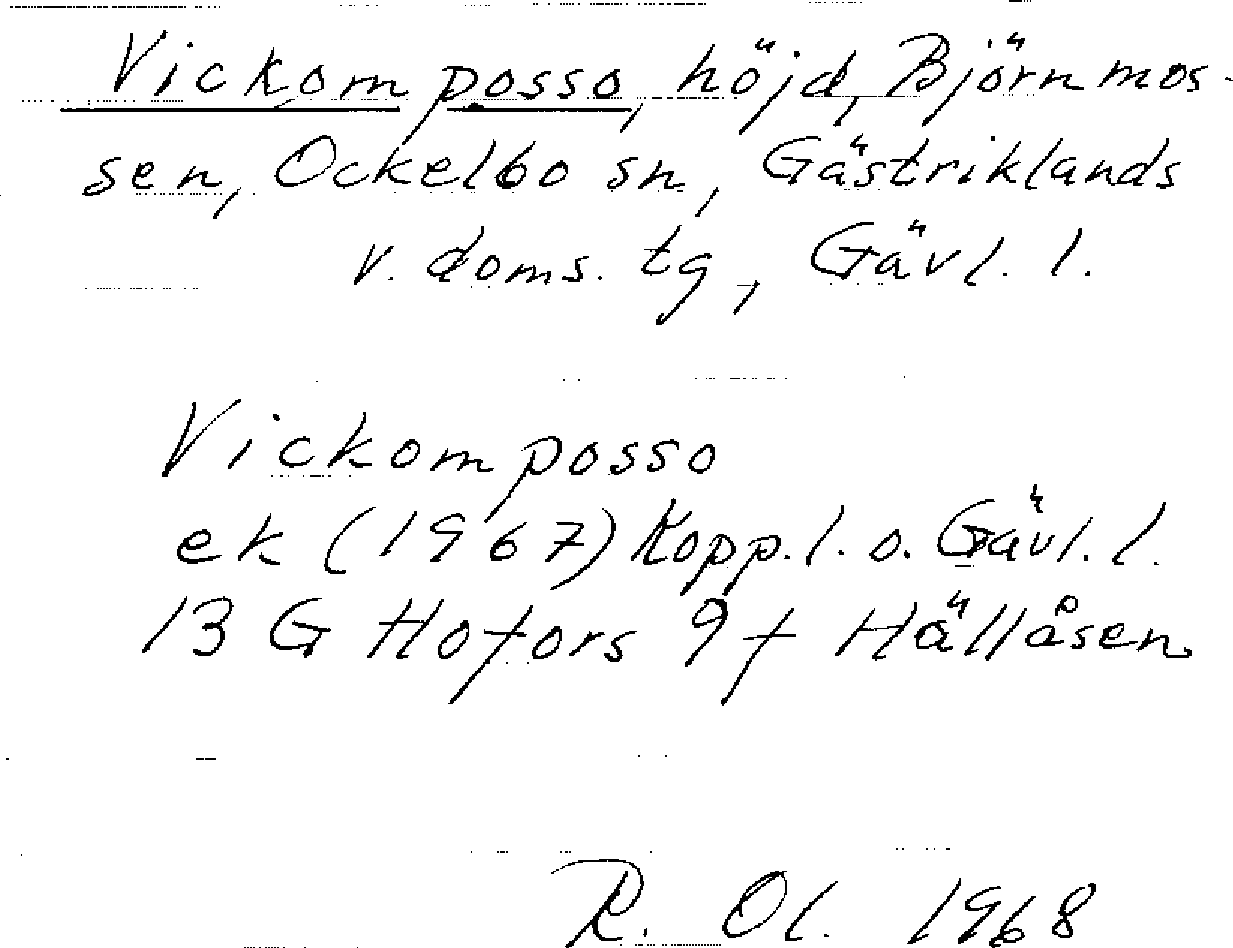 Vickomposso, höjd, Björnmos-
sen, Ockelbo sn, Gästriklands
v. doms. tg, Gävl. l.
Vickomposso
ek (1967) Kopp. l. o. Gävl. l.
13 G Hofors 9 f Hällåsen
R. Ol. 1968